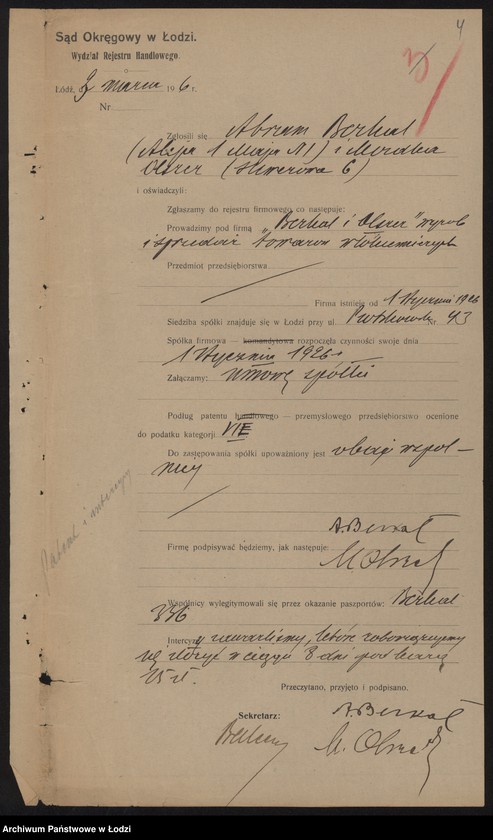 4
Sąd Okręgowy w Łodzi.
Wydział Rejestru Handlowego.
Łódź, 3 marca 1926 r.
Nr
Zgłosili się Abram Berkal
(Aleja 1 Maja N1) i Mordka
Olszer ( 6)
i oświadczyli:
Zgłaszamy do rejestru firmowego co następuje:
Prowadzimy pod firmą „Berkal i Olszer" wyrób
i sprzedaż towarów włókienniczych
Przedmiot przedsiębiorstwa
Firma istnieje od 1 Stycznia 1926
Siedziba spółki znajduje się w Łodzi przy ul. Piotrkowsk Nr 43
Spółka firmowa — komandytowa rozpoczęła czynności swoje dnia
1 Stycznia 1926 r.
Załączamy: umowę spółki
Podług patentu handlowego — przemysłowego przedsiębiorstwo ocenione
do podatku kategorji VII
Do zastępowania spółki upoważniony jest obaj wspól-
nicy
A. Berkal
Firmę podpisywać będziemy, jak następuje:
M Olszer
Wspólnicy wylegitymowali się przez okazanie paszportów: Berkal
336
Intercyzy zawarliśmy, które zobowiązujemy
się złożyć w ciągu 8 dni pod karą
25 zł.
Przeczytano, przyjęto i podpisano.
Sekretarz:
A. Berkal
M. Olszer
Patent i intercyzy
Archiwum Państwowe w Łodzi